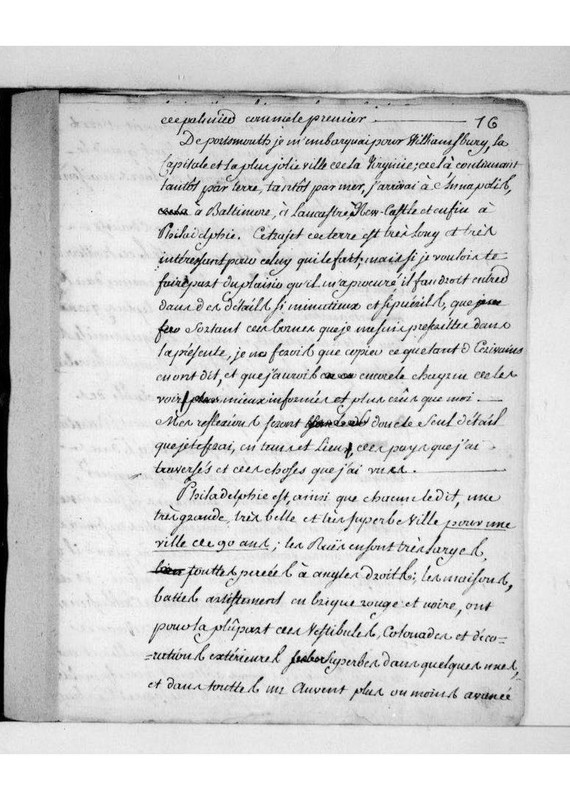 16
comme le premier
De portsmouth je m'embarquai pour Williamsburg, la
Capitale et la plus jolie ville de la Virginie; de là continuant
tantôt par terre, tantôt par mer, j'arrivai à Annapolis,
à Baltimore, à Lancastre, New-Castle et enfin à
Philadelphie. Ce trajet de terre est très long et très
intéressant pour celuy qui le fait; mais si je voulois te
faire part du plaisir qu'il m'a procuré il faudroit entrer
dans des détails si minutieux et si puérils, que
sortant des bornes que je me suis prescrittes dans
la présente, je ne ferois que copier ce que tant d'Ecrivains
en ont dit, et que j'aurois encore le chagrin de les
voir mieux informés et plus crûs que moi.
Mes reflexions seront donc le seul détail
que je te ferai, en tems et lieu, des pays que j'ai
traversés et des choses que j'ai vues.
Philadelphie est, ainsi que chacun le dit, une
très grande, très belle et très superbe Ville pour une
ville de 90 ans; les Ruës en sont très larges,
touttes percées à angles droits; les maisons,
baties artistement en brique rouge et noire, ont
pour la plûpart des Vestibules, Colonades et déco-
-rations extérieures superbes dans quelques unes,
et dans touttes un Auvent plus ou moins avancé